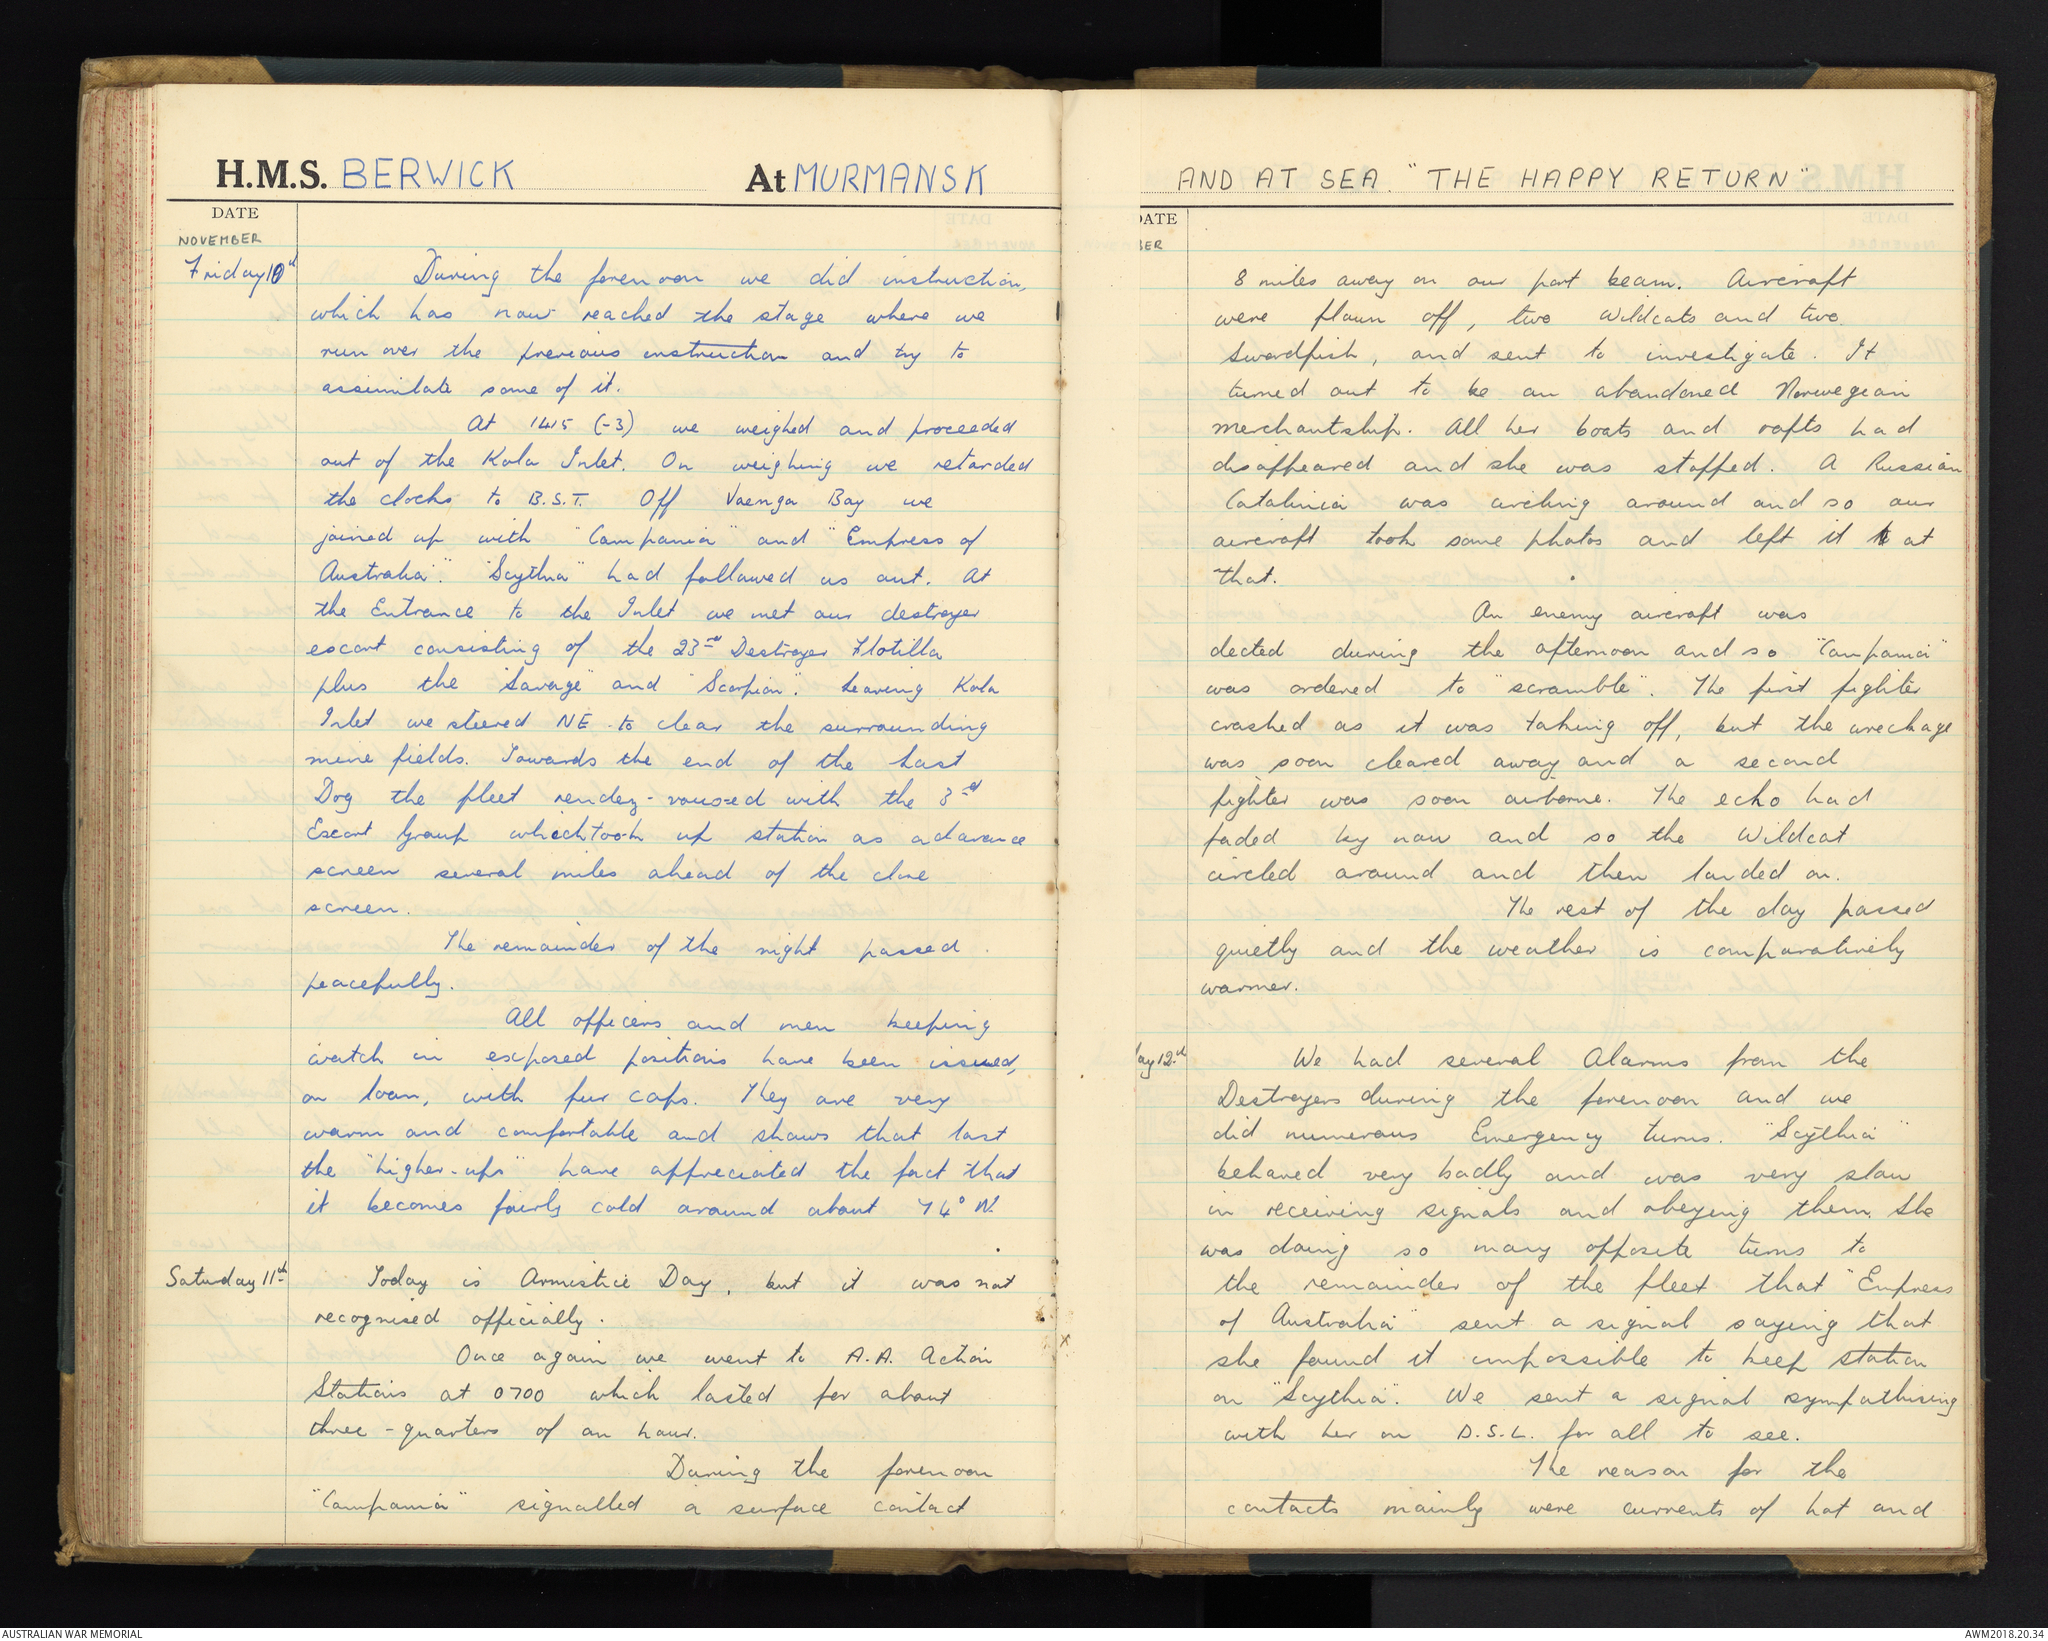 H.M.S. BERWICK At MURMANSK
DATE
NOVEMBER
Friday 10th During the forenoon we did instruction,
which has now reached the stage where we
run over the previous instruction and try to
assimilate some of it.
At 1415 (-3) we weighed and proceeded
out of the Kola Inlet. On weighing we retarded
the clocks to B.S.T. Off Vaenga Bay we
joined up with "Campania" and "Empress of
Australia". "Scythia" had followed us out. At
the Entrance to the Inlet we met our destroyer
escort consisting of the 23rd Destroyer Flotilla
plus the "Savage" and "Scorpion". Leaving Kola
Inlet we steered NE to clear the surrounding
mine fields. Towards the end of the Last
Dog the fleet rendez-voused with the 3rd
Escort Group which took up station as advance
screen several miles ahead of the close
screen.
The remainder of the night passed
peacefully.
All officers and men keeping
watch in exposed positions have been issued,
on loan, with fur caps. They are very
warm and comfortable and shows that last
the "higher-ups" have appreciated the fact that
it becomes fairly cold around about 74° N.
Saturday 11th Today is Armistice Day, but it was not
recognised officially.
Once again we went to A.A. Action
Stations at 0700 which lasted for about
three-quarters of an hour.
During the forenoon
"Campania" signalled a surface contact
AND AT SEA. "THE HAPPY RETURN"
DATE
BER
8 miles away on our port beam. Aircraft
were flown off, two Wildcats and two
Swordfish, and sent to investigate. It
turned out to be an abandoned Norwegian
merchantship. All her boats and rafts had
disappeared and she was stopped. A Russian
Catalinia was circling around and so our
aircraft took some photos and left it at
that.
An enemy aircraft was
dected during the afternoon and so "Campania"
was ordered to "scramble". The first fighter
crashed as it was taking off, but the wreckage
was soon cleared away and a second
fighter was soon airborne. The echo had
faded by now and so the Wildcat
circled around and then landed on.
The rest of the day passed
quietly and the weather is comparatively
warmer.
ay 12th We had several Alarms from the
Destroyers during the forenoon and we
did numerous Emergency turns. "Scythia"
behaved very badly and was very slow
in receiving signals and obeying them. She
was doing so many opposite turns to
the remainder of the fleet that "Empress
of Australia" sent a signal saying that
she found it impossible to keep station
on "Scythia". We sent a signal sympathising
with her on D.S.L. for all to see.
The reason for the
contacts mainly were currents of hot and
AUSTRALIAN WAR MEMORIAL
AWM2018.20.34